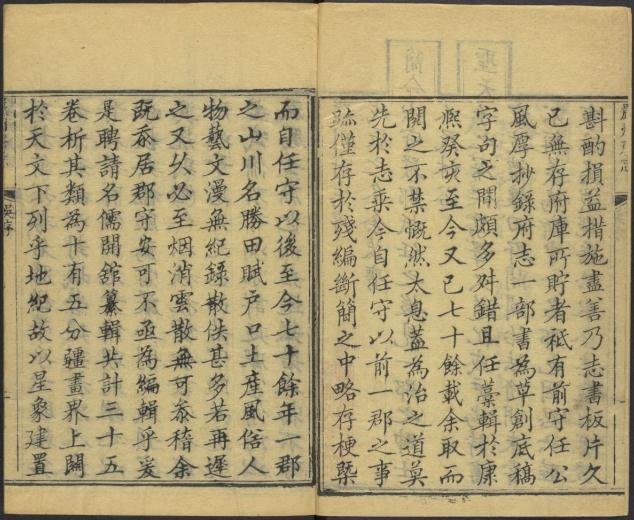 斟酌損益措施盡善乃志書板片久
已無存府庫所貯者祗有前守任公
風厚抄錄府志一部書為草創底稿
字句之間頗多舛錯且任藁輯於康
熈癸亥至今又已七十餘載余取而
閱之不禁慨然太息葢為治之道莫
先於志乘今自任守以前一郡之事
蹟僅存於殘編斷簡之中略存梗槩
而自任守以後至今七十餘年一郡
之山川名勝田賦户口土產風俗人
物藝文漫無紀錄散佚甚多若再遲
之又乆必至烟消雲散無可叅稽余
既忝居郡守安可不亟為編輯乎爰
是聘請名儒開舘纂輯共計三十五
卷析其類為十有五分疆畫界上闗
於天文下列乎地紀故以星象建置
吳序